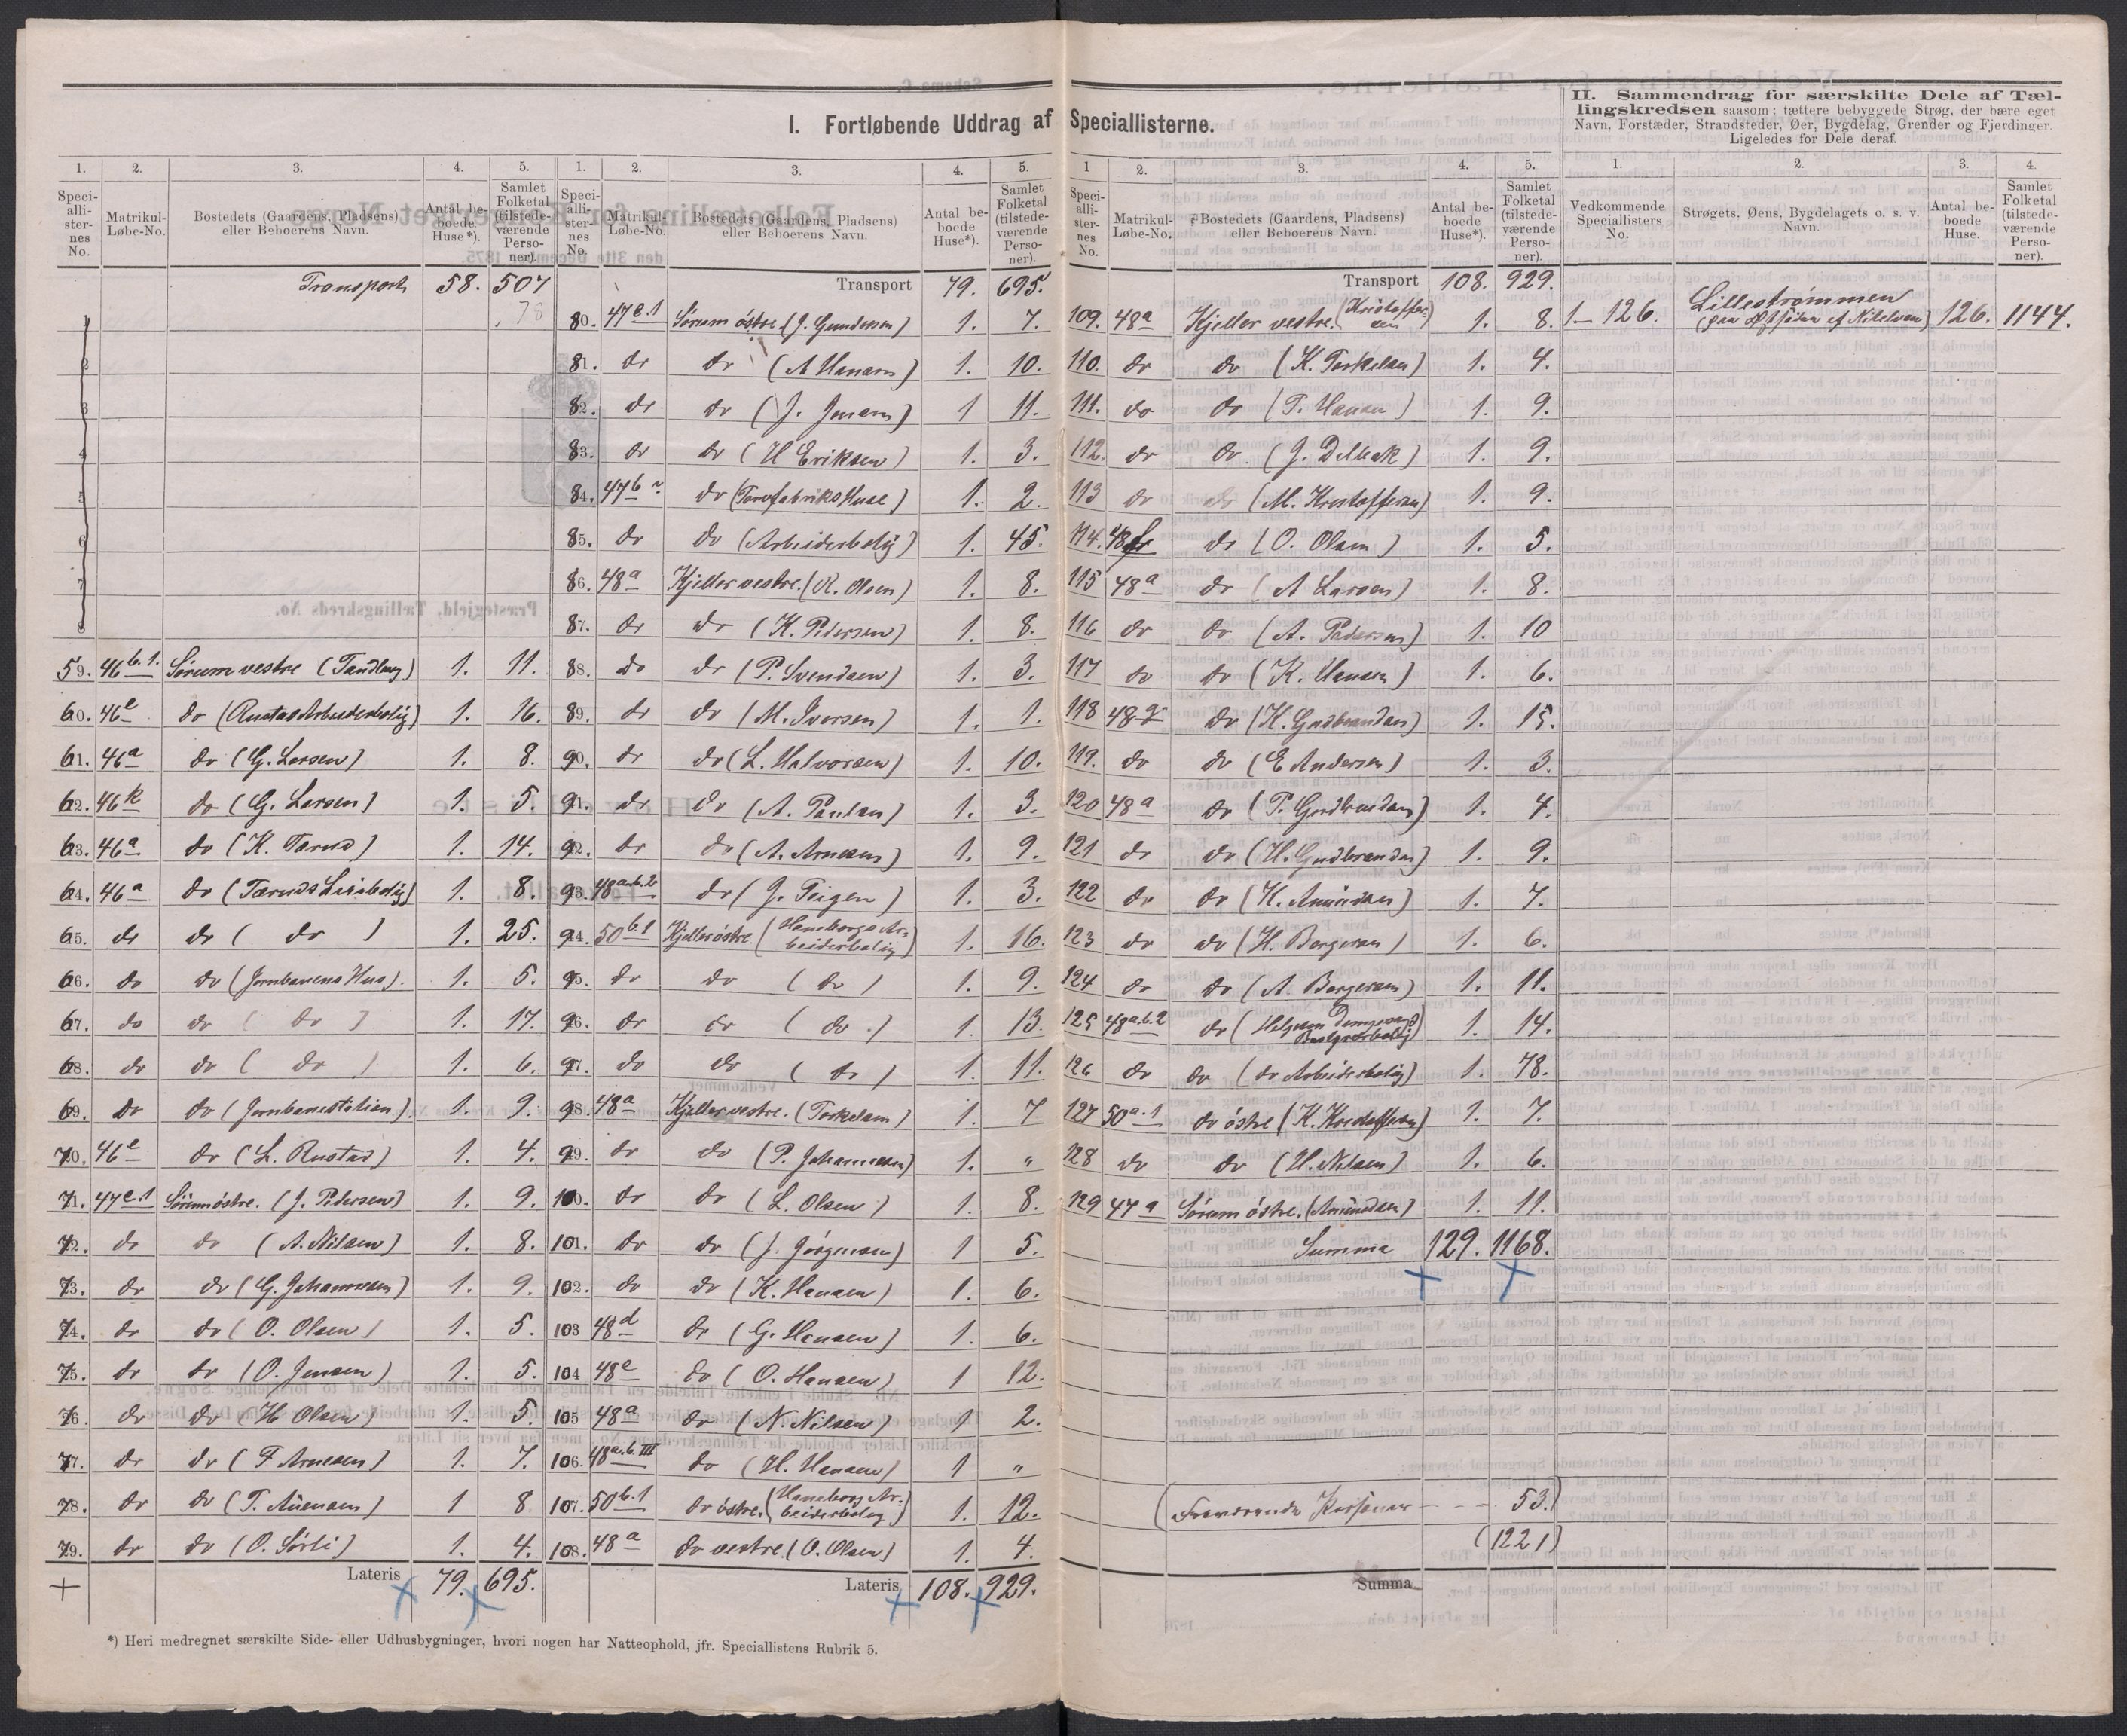 I. Fortløbende Uddrag af Speciallisterne.
II. Sammendrag for særskilte Dele af Tællingskredsen saasom: tættere bebyggede Strøg, der bære eget Navn, Forstæder, Strandsteder, Øer, Bygdelag, Grender og Fjerdinger. Ligeledes for Dele deraf.
1. 2. 3. 4. 5.
Speciallisternes No. Matrikul-Løbe-No. Bostedets (Gaardens, Pladsens) eller Beboerens Navn. Antal beboede Huse*). Samlet Folketal (tilstedeværende Personer).
Transport 58. 507
78
1
2
3
4
5
6
7
8
59. 46 b.1. Sørum vestre (Tandberg) 1. 11.
60. 46 e do (Rustas Arbeiderbolig) 1. 16.
61. 46 a do (G. Larsen) 1. 8.
62. 46 k do (G. Larsen) 1. 5.
63. 46 a do (K. Tærud) 1. 14.
64. 46 a do (Tæruds Leiebolig) 1. 8.
65. do do ( do ) 1. 25.
66. do do (Jernbanens Hus). 1. 5.
67. do do ( do ) 1. 17.
68. do do ( do ) 1. 6.
69. do do (Jernbanestation). 1. 9.
70. 46 e do (L. Rustad) 1. 4.
71. 47 e.1 Sørum østre. (J. Pedersen) 1. 9.
72. do do (A. Nilsen) 1. 8.
73. do do (G. Johannesen) 1. 9.
74. do do (O. Olsen) 1. 5.
75. do do (O. Jensen) 1. 5.
76. do do (H Olsen) 1. 5.
77. do do (F Arnesen) 1. 7.
78. do do (T. Auensen) 1 8
79. do do (O. Sørli) 1. 4.
Lateris 79. 695.
1. 2. 3. 4. 5.
Speciallisternes No. Matrikul-Løbe-No. Bostedets (Gaardens, Pladsens) eller Beboerens Navn. Antal beboede Huse*). Samlet Folketal (tilstedeværende Personer).
Transport 79. 695.
80. 47 e.1 Sørum østre (J. Gundersen) 1. 7.
81. do do (A Hansen) 1. 10.
82. do do (J. Jensen) 1 11.
83. do do (H Eriksen) 1. 3.
84. 47 b do (Torvfabriks Huse) 1. 2.
85. do do (Arbeiderbolig) 1. 45.
86. 48 a Kjeller vestre. (R. Olsen) 1. 8.
87. do do (K. Pedersen) 1. 8.
88. do do (P. Svendsen) 1. 3.
89. do do (M. Iversen) 1. 1.
90. do do (L. Halvorsen) 1. 10.
91. do do (A. Paulsen) 1. 3.
92. do do (A. Arnesen) 1. 9.
93. 48 a.b.2 do (J. Teigen) 1. 3.
94. 50 b.1 Kjeller østre (Haneborgs Arbeiderbolig) 1. 16.
95. do do (do) 1. 9.
96. do do (do.) 1. 13.
97. do do (do) 1. 11.
98. 48 a Kjeller vestre. (Torkelsen) 1. 7
99. do do (P. Johannesen) 1. "
100. do do (L. Olsen) 1. 8.
101. do do (J. Jørgensen) 1 5.
102. do do (K. Hansen) 1. 6.
103 48 d do (G. Hansen) 1. 6.
104 48 e do (O. Hansen) 1 12.
105 48 a do (N. Nilsen) 1 2.
106. 48 a.b.III do (H. Hansen) 1 "
107. 50 b.1 do østre. (Haneborgs Arbeiderbolig) 1. 12.
108. 48 a do vestre. (O. Olsen) 1. 4.
Lateris 108. 929.
*) Heri medregnet særskilte Side- eller Udhusbygninger, hvori nogen har Natteophold, jfr. Speciallistens Rubrik 5.
1 2. 3. 4. 5.
Speciallisternes No. Matrikul-Løbe-No. Bostedets (Gaardens, Pladsens) eller Beboerens Navn. Antal beboede Huse*). Samlet Folketal (tilstedeværende Personer).
Transport 108. 929.
109. 48 a Kjeller vestre. (Kristoffersen) 1. 8.
110. do do (K. Torkelsen) 1. 4.
111. do do (T. Hansen) 1. 9.
112. do do. (J. Delbak) 1. 9.
113 do do (M. Kristoffersen) 1. 9.
114. 48 do (O. Olsen) 1. 5.
115 48 a do (A Larsen) 1. 8.
116 do do (A. Pedersen) 1. 10
117 do do (K. Hansen) 1. 6.
118 48 g do (K. Gudbrandsen) 1. 15.
119. do do (E Andersen) 1. 3.
120 48 a do (P. Gudbrandsen) 1. 4.
121 do do (H. Gudbrandsen) 1. 9.
122 do do (K. Amundsen) 1. 7.
123 do do (H. Bergersen) 1. 6.
124 do do (A. Bergersen) 1. 11.
125 48 a.b.2 do (Helgesen Dampsags 1. 14.
126 do do (do Arbeiderbolig) 1. 78.
127 50 a.1 do østre (K. Kristoffersen) 1. 7.
128 do do (H. Nilsen) 1. 6.
129 47 a Sørum østre. (Amundsen) 1. 11.
Summa 129. 1168.
(Fraværende Personer - - - 53.)
(1221)
Summa
1. 2. 3. 4.
Vedkommende Speciallisters No. Strøgets, Øens, Bygdelagets o. s. v. Navn. Antal beboede Huse. Samlet Folketal (tilstedeværende Personer).
1 - 126. Lillestrømmen (paa Østsiden af Nitelven) 126. 1144.